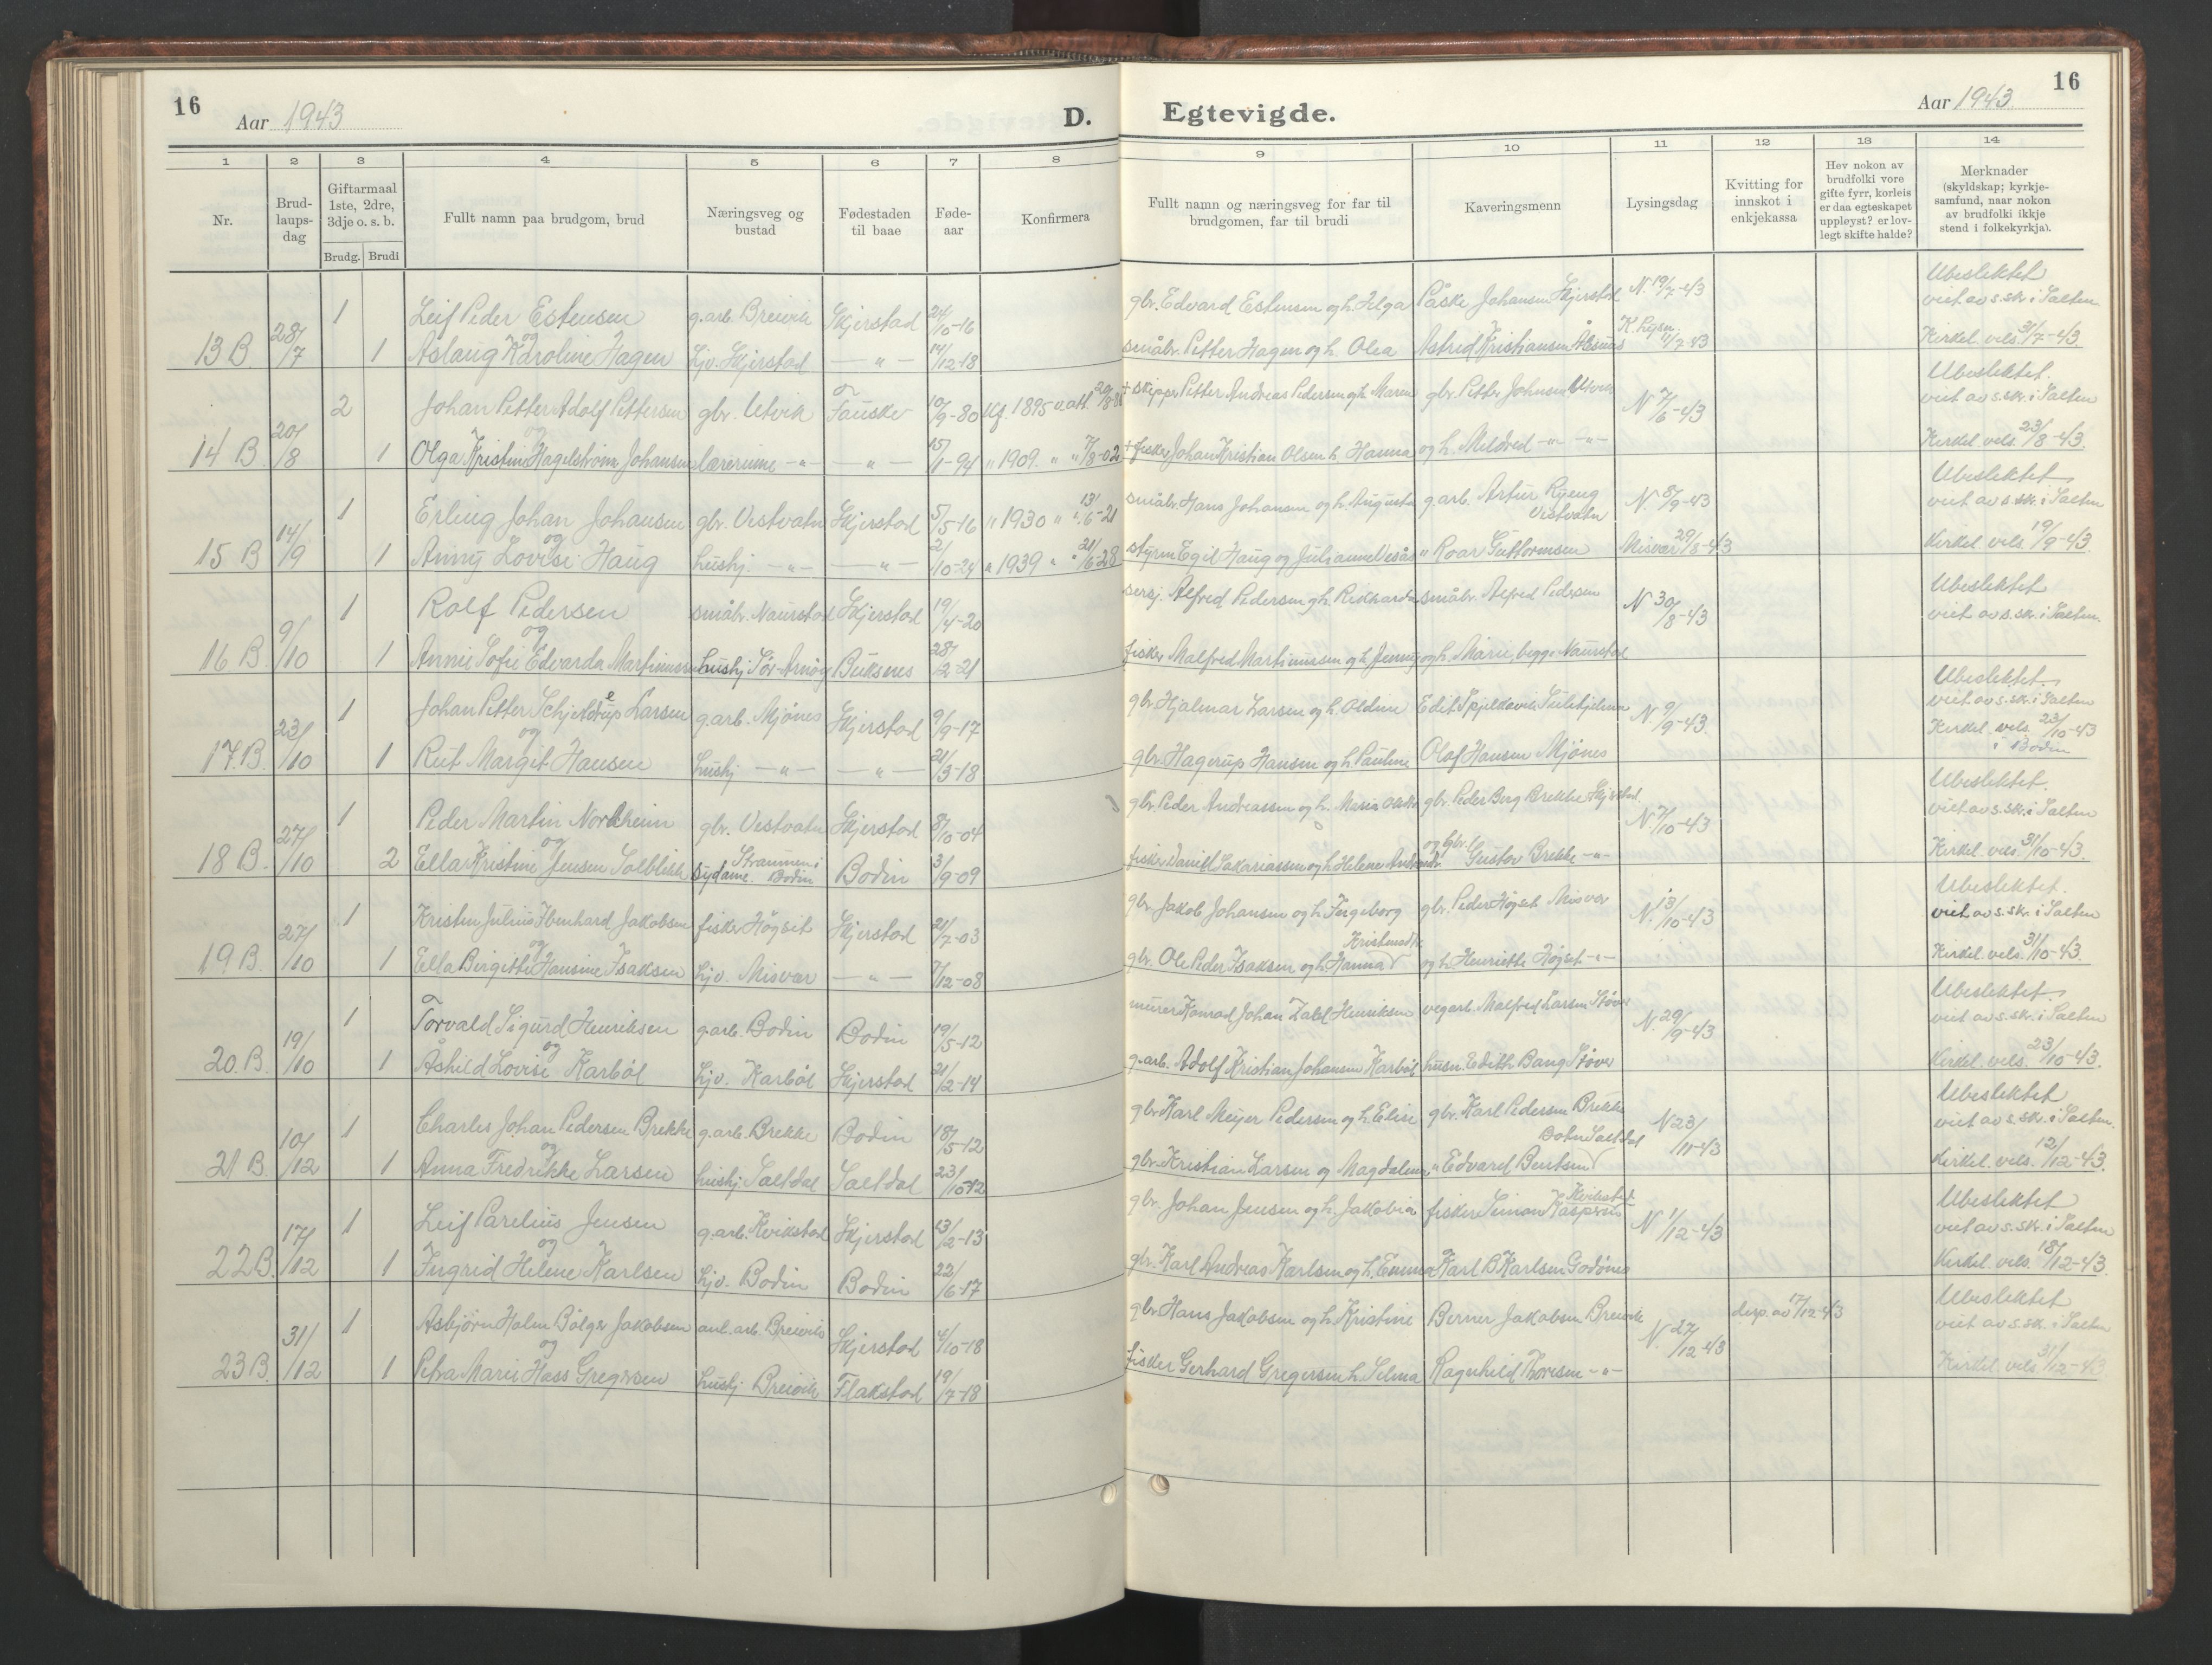 16
Aar 1943
D. Egtevigde.
Aar 1943
16
1 2 3 4 5 6 7 8 9 10 11 12 13 14
Nr.
Brud-
laups-
dag
Giftarmaal
1ste, 2dre,
3dje o. s. b.
Brudg. Brudi
Fullt namn paa brudgom, brud
Næringsveg og
bustad
Fødestaden
til baae
Føde-
aar
Konfirmera
Fullt namn og næringsveg for far til
brudgomen, far til brudi
Kaveringsmenn
Lysingsdag
Kvitting for
innskot i
enkjekassa
Hev nokon av
brudfolki vore
gifte fyrr, korleis
er daa egteskapet
uppløyst? er lov-
legt skifte halde?
Merknader
(skyldskap; kyrkje-
samfund, naar nokon
av brudfolki ikkje
stend i folkekyrkja).
13 B. 28/7
1 Leif Peder Estensen g.arb. Breivik Skjerstad 24/10-16 gbr. Edvard Estensen og h. Helga Påske Johansen Skjerstad N. 19/7-43 Ubeslektet viet av s.skr. i Salten
og
1 Aslaug Karoline Hagen hjv. Skjerstad —"— 14/12-18 småbr. Petter Hagen og h. Olea Astrid Kristiansen K. Lysn. 11/7-43 Kirkel. vels. 31/7-43.
14 B. 20/8
2 Johan Petter Adolf Pettersen gbr. Utvik Fauske 10/9-80 Kf. 1895 v.att. + skipper Petter Andreas Pedersen og h. Maren gbr. Petter Johnsen Utvik N 7/6-43 Ubeslektet. viet av s.skr. i Salten
og
1 Olga Kristine Hagelstrøm Johansen lærerinne —"— —"— 15/1-94 " 1909. " + fisker Johan Kristian Olsen h. Hanna og h. Mildred —"— —"— Kirkel. vels. 23/8-43.
15 B 14/9
1 Erling Johan Johansen gbr. Vestvatn Skjerstad 5/5-16 " 1930 " " 13/6-21 småbr. Hans Johansen og h. Augusta g.arb. Artur Ryeng Vestvatn N. 8/9-43 Ubeslektet viet av s.skr. i Salten
og
1 Anny Lovise Haug hushj. —"— —"— 2/10-24 " 1939 " " 21/6-28 styrm Egil Haug og Julianne Vesås " Roar Guttormsen Misvær 29/8-43 Kirkel. vels. 19/9-43.
16 B. 9/10
1 Rolf Pedersen småbr. Naurstad Skjerstad 19/4-20 sersj. Alfred Pedersen og h. Rikharda småbr. Alfred Pedersen N 30/8-43 Ubeslektet viet av s.skr. i Salten.
og
1 Annie Sofie Edvarda Martinussen hushj Sør-Arnøy Buksnes 28/2-21 fisker Malfred Martinussen og h. Jenny og h. Marie, begge Naurstad
17. B. 23/10
1 Johan Petter Schjelderup Larsen g.arb. Mjønes Skjerstad 9/9-17 gbr. Hjalmar Larsen og h. Oldine Edit Spjelkavik Sulitjelma N. 9/9-43. Ubeslektet. viet av s.skr. i Salten
og
1 Rut Margit Hansen hushj —"— —"— 21/3-18 gbr. Hagerup Hansen og h. Pauline Olaf Hansen Mjønes Kirkel. vels. 23/10-43 i Bodin
18 B. 27/10
1 Peder Martin Nordheim gbr. Vestvatn Skjerstad 8/10-04 gbr. Peder Andreassen og h. Maria gbr. Peder Berg Brekke Skjerstad. N. 7/10-43 Ubeslektet. viet av s.skr. i Salten
og
2 Ella Kristine Jensen Solblikk sydame. Straumen i Bodin Bodin 3/9-09 fisker Daniel Sakariassen og h. Helene og gbr. Gustav Brekke —"— Kirkel. vels 31/10-43.
19 B. 27/10
1 Kristen Julius Ibenhard Jakobsen fisker Høgset Skjerstad 21/7-03 gbr. Jakob Johansen og h. Ingeborg gbr. Peder Høgset Misvær N. 13/10-43 Ubeslektet. viet av s.skr. i Salten
og
1 Ella Birgitte Hansine Isaksen hjv. Misvær —"— 7/12-08 gbr. Ole Peder Isaksen og h. Hanna og h. Henriette Høgset —"— Kirkel. vels. 31/10-43.
20. B. 19/10
1 Torvald Sigurd Henriksen g.arb. Bodin Bodin 19/5-12 murer Konrad Johan Zahl Henriksen vegarb. Malfred Larsen Støver N. 29/9-43 Ubeslektet. viet av s.skr. i Salten
og
1 Åshild Lovise Karbøl hjv. Karbøl Skjerstad 21/2-14 g.arb. Adolf Kristian Johansen Karbøl husn. Edith Bang Støver Kirkel. vels. 23/10-43.
21 B. 10/12
1 Charles Johan Pedersen Brekke g.arb. Brekke Bodin 18/5-12 gbr. Karl Meyer Pedersen og h. Elise gbr. Karl Pedersen Brekke N 23/11-43 Ubeslektet viet av s.skr. i Salten.
og
1 Anna Fredrikke Larsen hushj. Saltdal Saltdal 23/10-12 gbr. Kristian Larsen og Magdalena " Edvard Bentsen Botn Saltdal Kirkel. vels. 12/12-43.
22 B. 17/12
1 Leif Parelius Jensen g.arb. Kvikstad Skjerstad 13/2-13 gbr. Johan Jensen og h. Jakobia fisker Simon Kaspersen Kvikstad N 1/12-43 Ubeslektet viet av s.skr. i Salten
og
1 Ingrid Helene Karlsen hjv. Bodin Bodin 22/6-17 gbr. Karl Andreas Karlsen og h. Emma Karl B Karlsen Godønes Kirkel. vels. 18/12-43.
23 B. 31/12
1 Asbjørn Holm Bolger Jakobsen anl. arb. Breivik Skjerstad 4/10-18 gbr Hans Jakobsen og h. Kristine Berner Jakobsen Breivik N. 27/12-43 desp. av 17/12-43 Ubeslektet viet av s.skr. i Salten
og
1 Petra Marie Hass Gregersen hushj Breivik Flakstad 19/7-18 fisker Gerhard Gregersen h. Selma Ragnhild Thoresen —"— Kirkel. vels 31/12-43